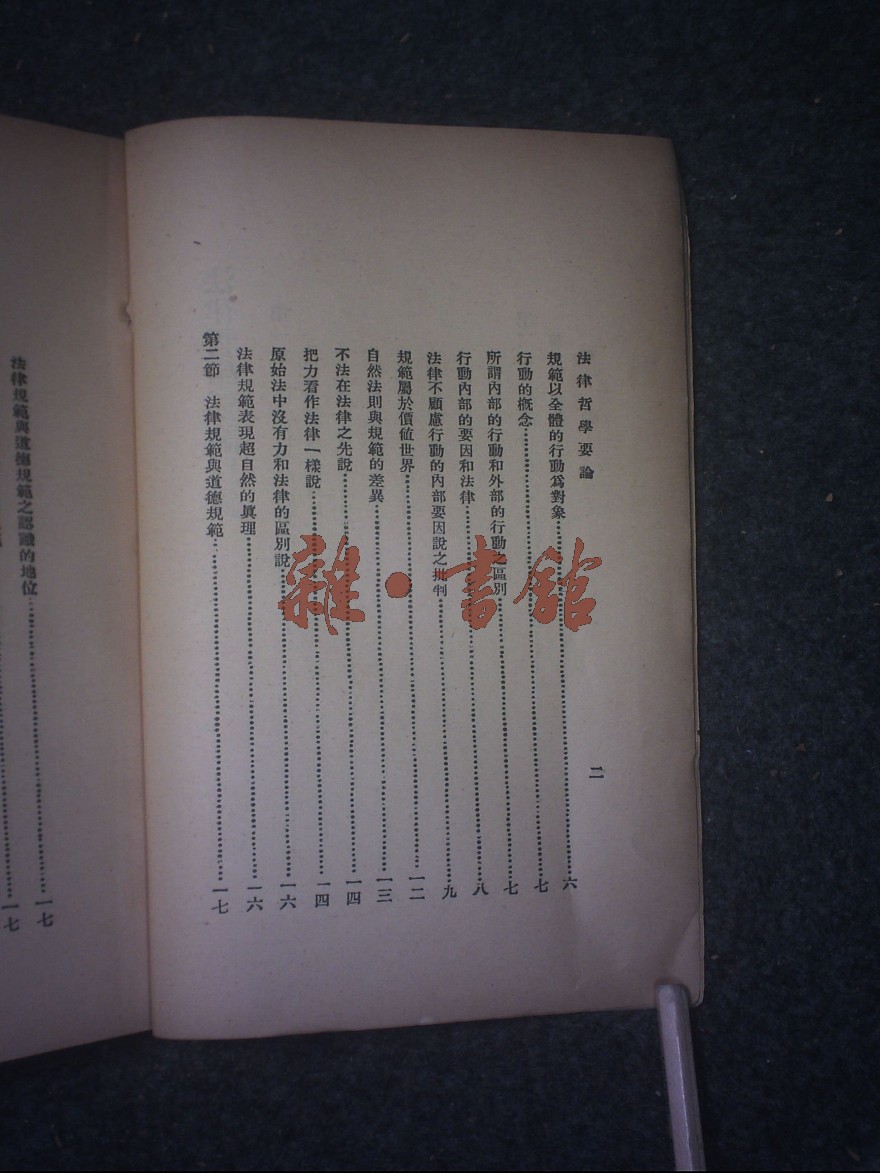 法律哲學要論
二
規範以全體的行動爲對象……六
行動的概念……七
所謂內部的行動和外部的行動之區別……七
行動內部的要因和法律……八
法律不顧慮行動的內部要因說之批判……九
規範屬於價値世界……一二
自然法則與規範的差異……一三
不法在法律之先說……一四
把力看作法律一樣說……一四
原始法中沒有力和法律的區別說……一六
法律規範表現超自然的眞理……一六
第二節　法律規範與道德規範……一七
法律規範與道德規範之認識的地位……一七
一七
雜·書館